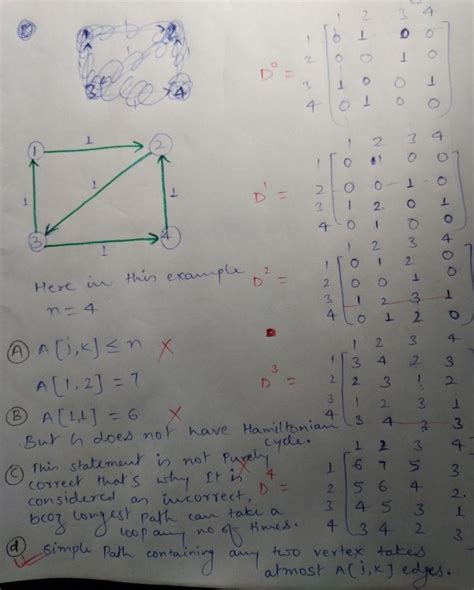 1 2 3 4
1 0 1 0 0
2 0 0 1 0
D⁰ =
3 1 0 0 1
4 0 1 0 0
3 4
1 1 2
1 1 1
3 1 4
1 2 3 4
1 0 1 0 0
2 0 0 1 0
D¹ =
3 1 2 0 1
4 0 1 0 0
1 2 3 4
1 0 1 2 0
2 0 0 1 0
D² =
3 1 2 3 1
4 0 1 2 0
Here in this example
n = 4
(A) A[j,k] ≤ n X
A[1,2] = 7
(B) A[1,1] = 6 X
But G does not have Hamiltonian
cycle.
1 2 3 4
1 3 4 2 3
D³ =
2 2 3 1 2
3 1 2 3 1
4 3 4 3 3
(C) This statement is not purely
correct that's why It is X
considered as incorrect,
bcoz longest path can take a
loop any no of times.
1 2 3 4
1 6 7 5 3
D⁴ =
2 5 6 4 2
3 4 5 3 1
4 3 4 2 3
(d) Simple Path containing any two vertex takes
atmost A[i,k] edges.